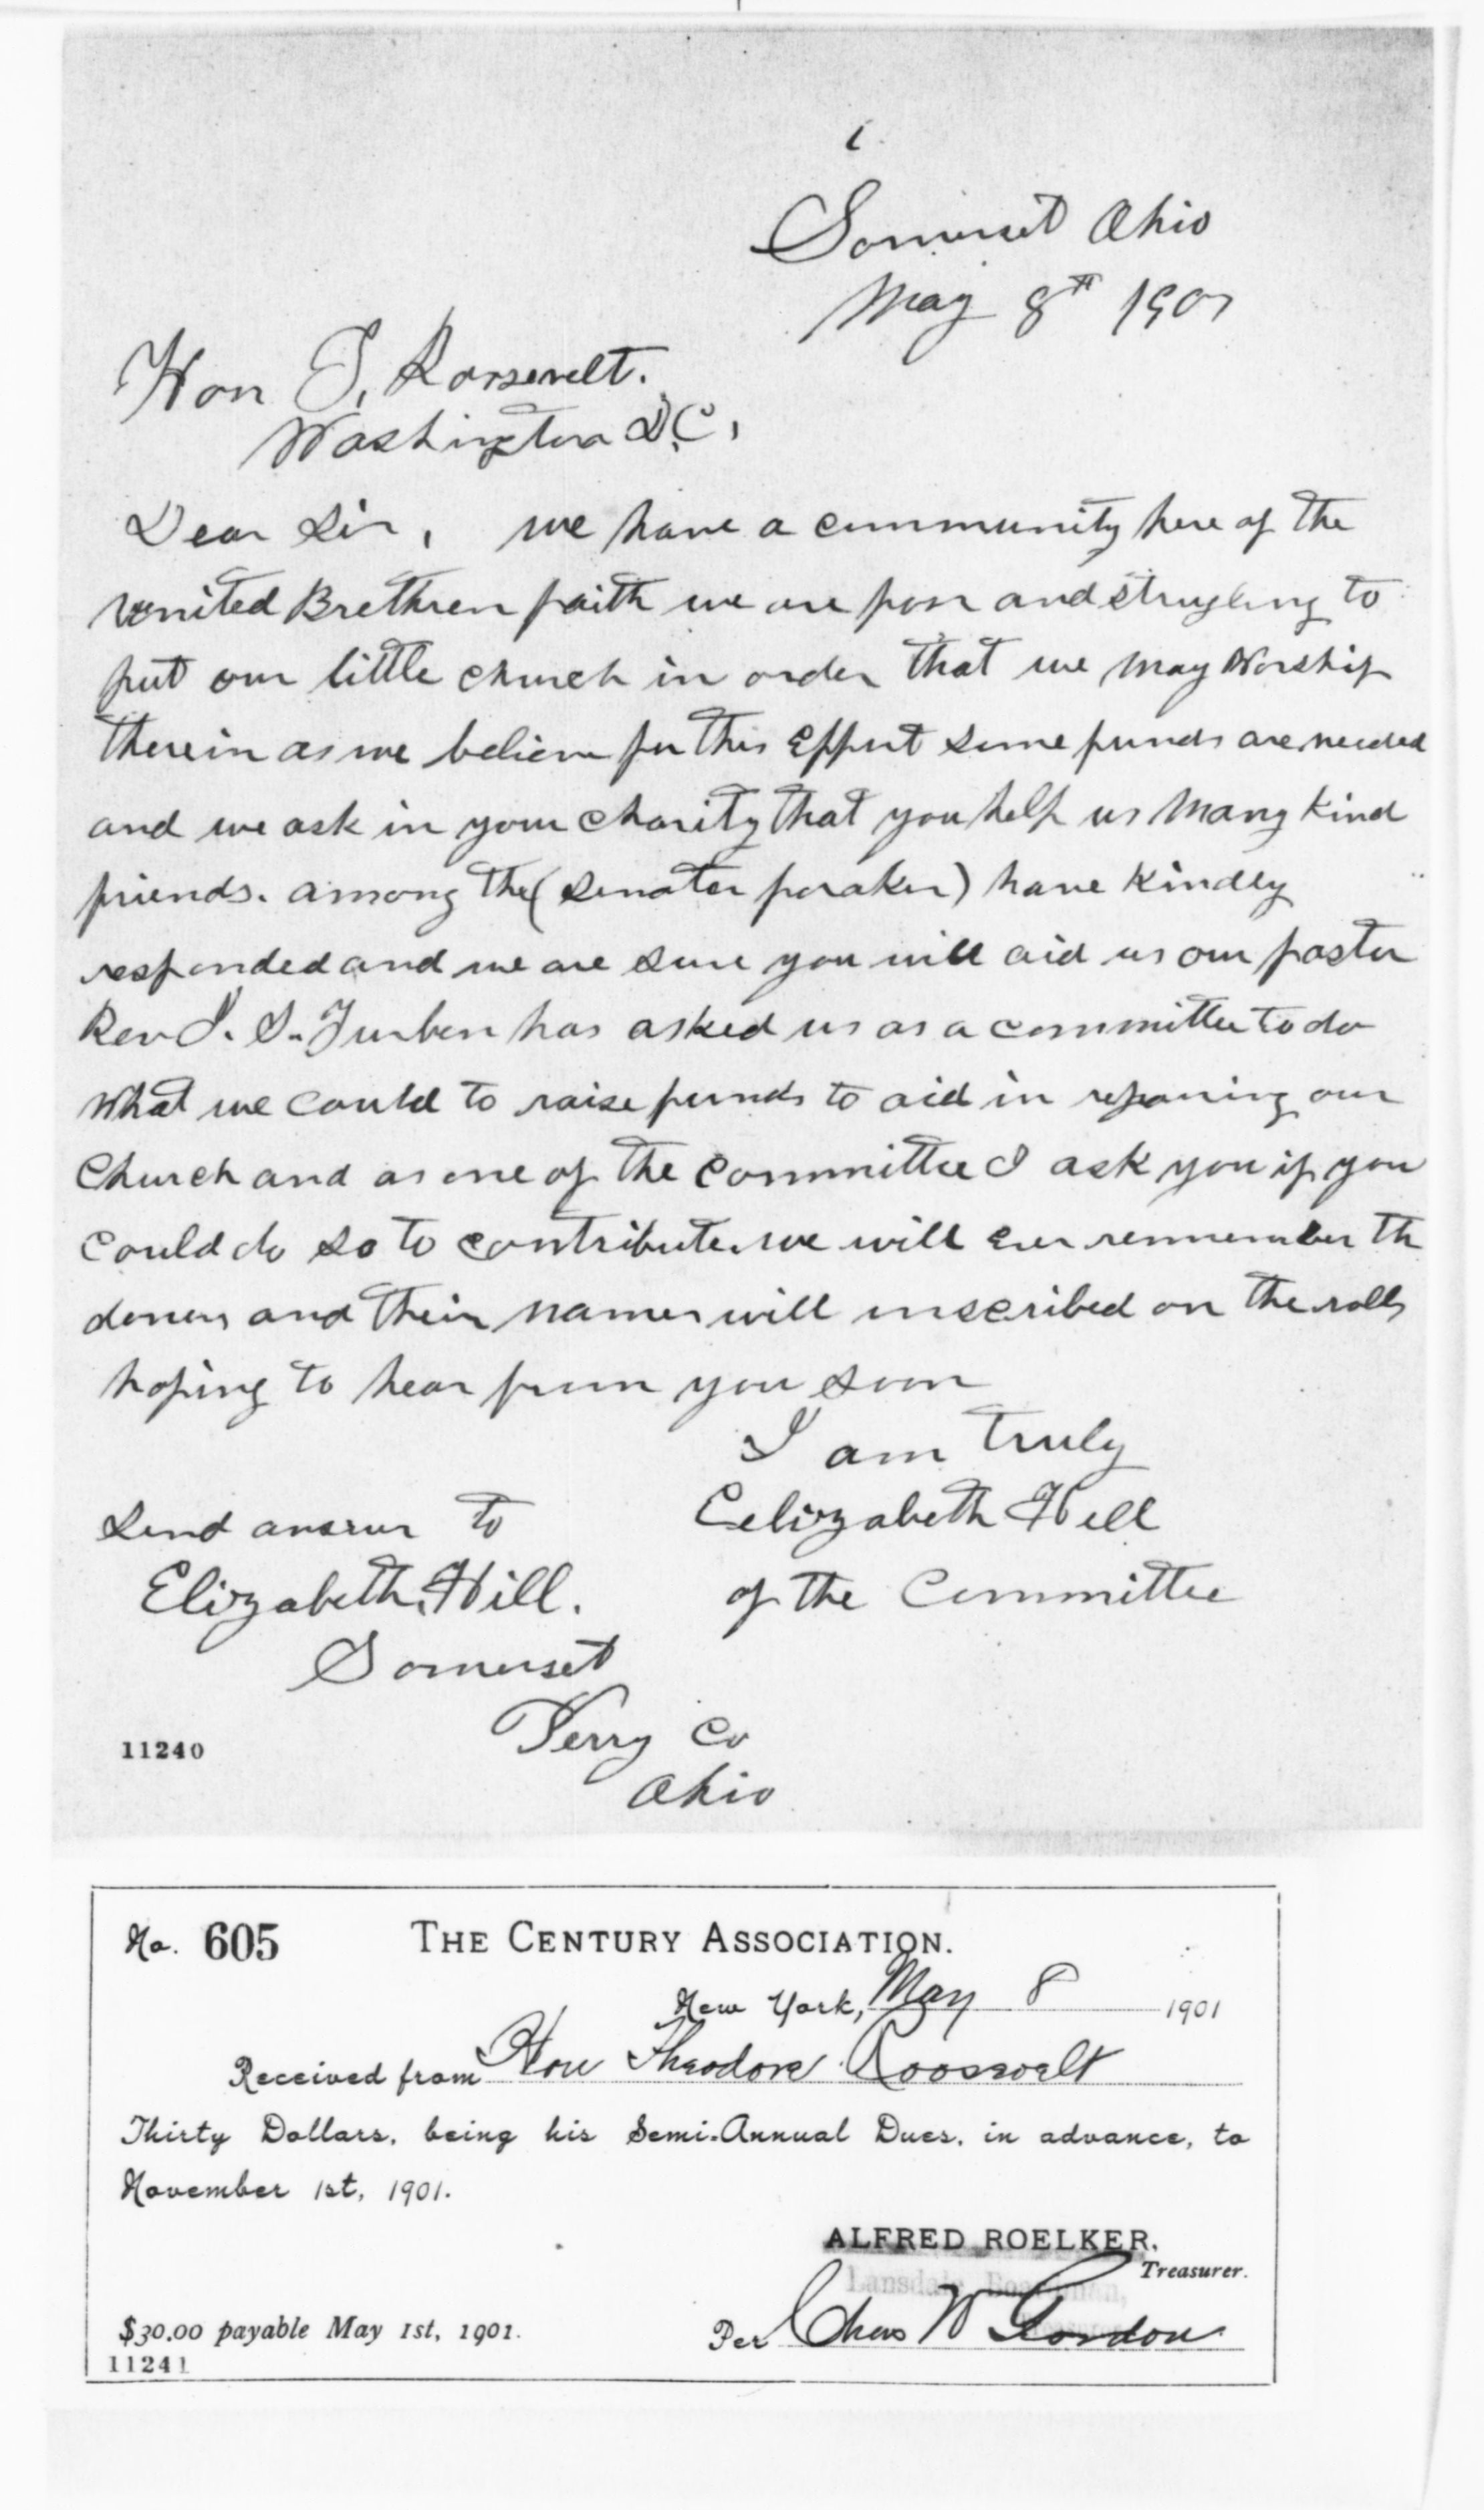 Somerset Ohio
May 8th 1901
Hon T, Roosevelt.
Washington D.C,
Dear Sir, we have a community here of the
United Brethren faith we are poor and strugling to
put our little church in order that we may Worship
therein as we believe for this Effort some funds are needed
and we ask in your charity that you help us Many kind
friends. among the (Senator foraker) have kindly
responded and we are sure you will aid us our pastor
Rev J. S. has asked us as a committee to do
What we could to raise funds to aid in reparing our
Church and as one of the Committee I ask you if you
could do so to contribute. we will ever remember th
donors and their names will inscribed on the rolls
hoping to hear from you soon
I am truly
Elizabeth Hill
of the Committee
Send answer to
Elizabeth, Hill.
Somerset
Perry Co
Ohio
11240
No. 605 THE CENTURY ASSOCIATION.
New York, May 8 1901
Received from Hon Theodore Roosevelt
Thirty Dollars, being his Semi-Annual Dues, in advance, to
November 1st, 1901.
ALFRED ROELKER,
Treasurer.
$30.00 payable May 1st, 1901.
Per Chas W Gordon
11241